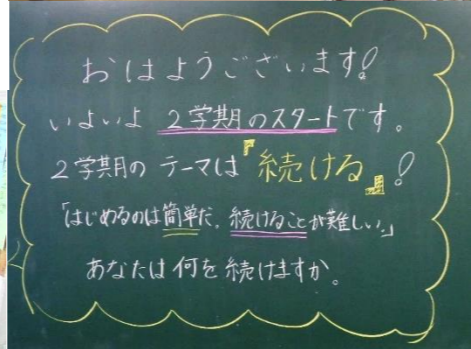 おはようございます!
いよいよ 2学期のスタートです。
2学期の テーマは『続ける』!
「はじめるのは簡単だ。続けることが難しい。」
あなたは 何を 続けますか。